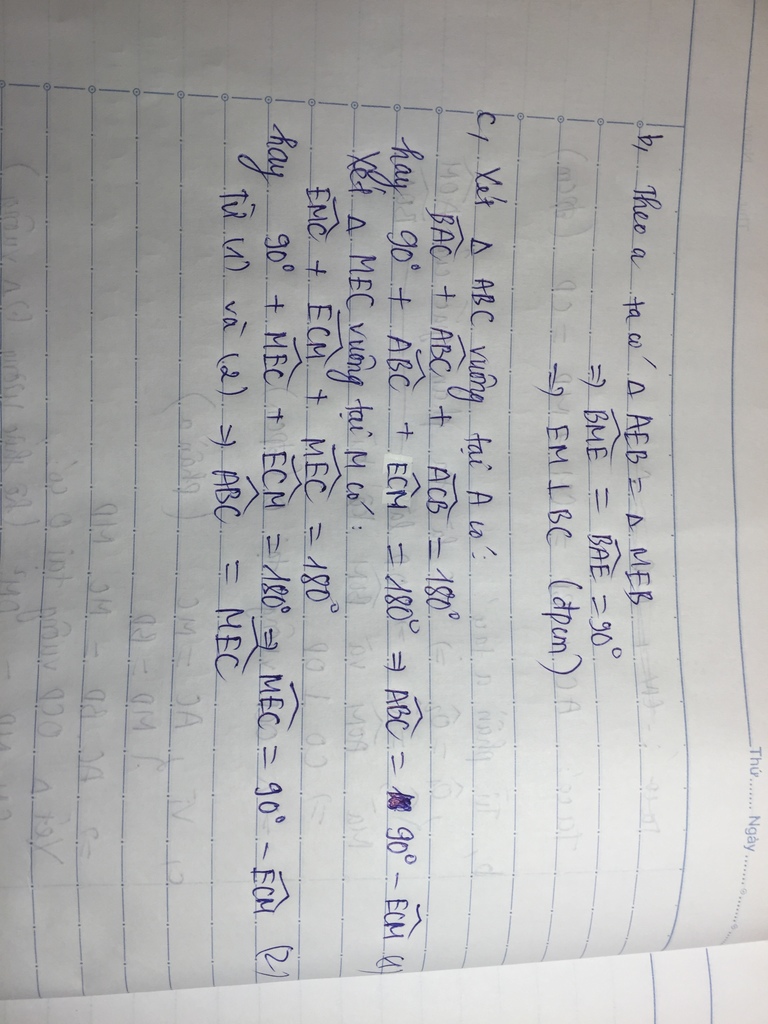 Thứ....... Ngày...........
b, Theo a ta có Δ AEB = Δ MEB
=> \widehat{BME} = \widehat{BAE} = 90°
=> EM ⊥ BC (đpcm)
c, Xét Δ ABC vuông tại A có:
\widehat{BAC} + \widehat{ABC} + \widehat{ACB} = 180°
hay 90° + \widehat{ABC} + \widehat{ECM} = 180° => \widehat{ABC} = 90° - \widehat{ECM} (1)
Xét Δ MEC vuông tại M có:
\widehat{EMC} + \widehat{ECM} + \widehat{MEC} = 180°
hay 90° + \widehat{MEC} + \widehat{ECM} = 180° => \widehat{MEC} = 90° - \widehat{ECM} (2)
Từ (1) và (2) => \widehat{ABC} = \widehat{MEC}